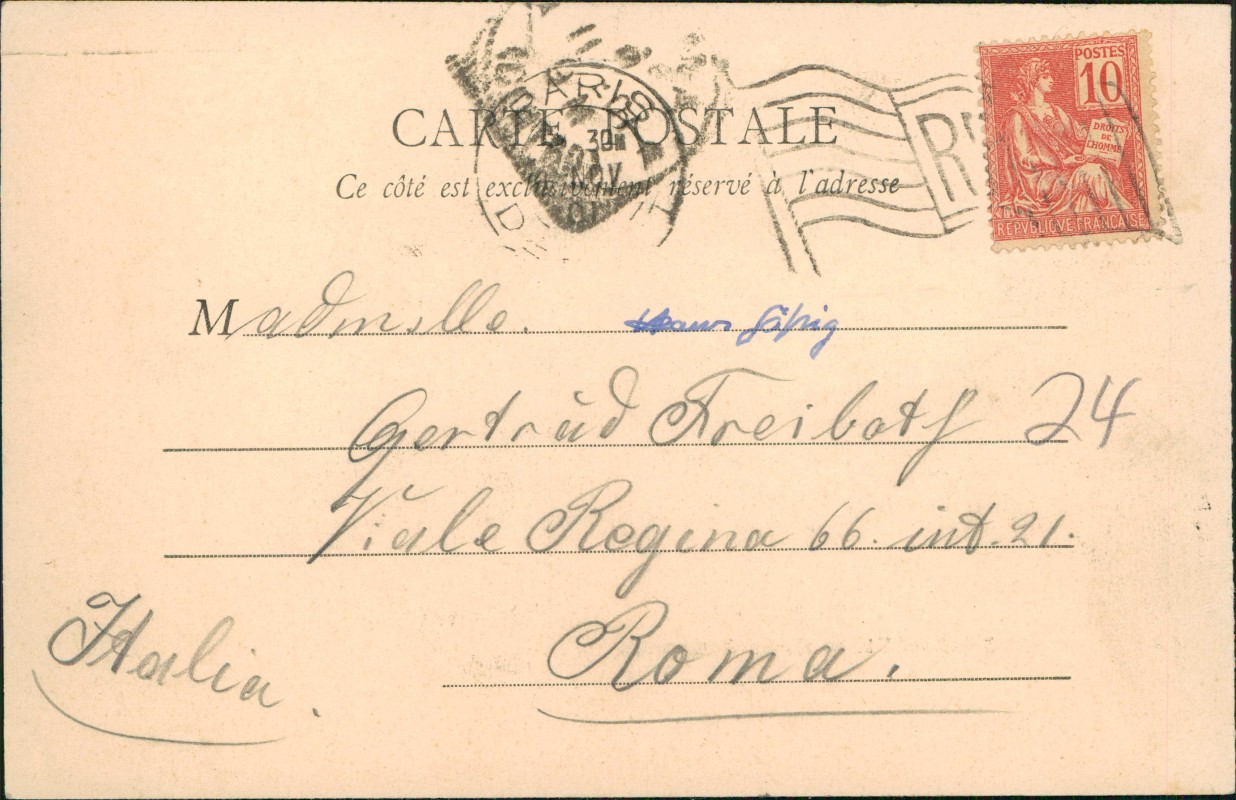 PARIS
30M
NOV
01
POSTES
10
DROITS
DE
L'HOMME
REPVBLIQVE FRANÇAISE
CARTE POSTALE
Ce côté est exclusivement réservé à l'adresse
Madmelle.
Gertrud Freiboth 24
Viale Regina 66. int. 21.
Roma.
Italia.